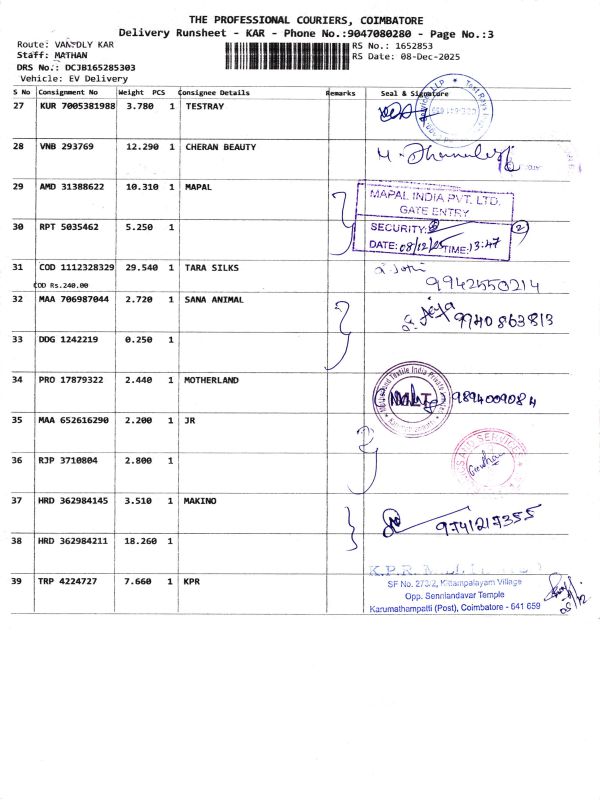 THE PROFESSIONAL COURIERS, COIMBATORE
Delivery Runsheet - KAR - Phone No.:9047080280 - Page No.:3
Route: VANDLY KAR
RS No.: 1652853
Staff: MATHAN
RS Date: 08-Dec-2025
DRS No.: DCJB165285303
Vehicle: EV Delivery
S No Consignment No Weight PCS Consignee Details Remarks Seal & Signature
27 KUR 7005381988 3.780 1 TESTRAY
28 VNB 293769 12.290 1 CHERAN BEAUTY
29 AMD 31388622 10.310 1 MAPAL
MAPAL INDIA PVT. LTD.
GATE ENTRY
30 RPT 5035462 5.250 1
SECURITY:
2
DATE: 08/12/25 TIME: 13:47
31 COD 1112328329 29.540 1 TARA SILKS
COD Rs.240.00
9942550214
32 MAA 706987044 2.720 1 SANA ANIMAL
9940863813
33 DDG 1242219 0.250 1
34 PRO 17879322 2.440 1 MOTHERLAND
MLT
9894009084
35 MAA 652616290 2.200 1 JR
36 RJP 3710804 2.800 1
37 HRD 362984145 3.510 1 MAKINO
9741217355
38 HRD 362984211 18.260 1
K.P.R.
39 TRP 4224727 7.660 1 KPR
SF No. 273/2, Kittampalayam Village
Opp. Senniandavar Temple
Karumathampatti (Post), Coimbatore - 641 659